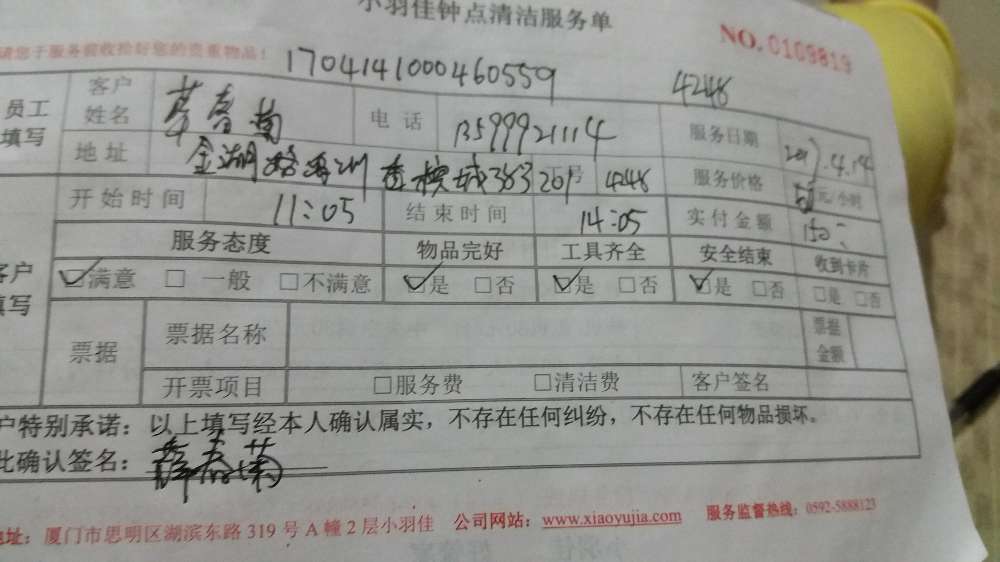 小羽佳钟点清洁服务单
NO.0109819
请您于服务前收拾好您的贵重物品!
1704141000460559
4248
员工
填写
客户
姓名
电话
13599921114
服务日期
2017.4.14
地址
金湖路
363 201号 4248
服务价格
50元/小时
开始时间
11:05
结束时间
14:05
实付金额
150
服务态度
物品完好
工具齐全
安全结束
收到卡片
客户
填写
☑满意 □一般 □不满意
☑是 □否
☑是 □否
☑是 □否
□是 □否
票据
票据名称
票据
金额
开票项目
□服务费
□清洁费
客户签名
户特别承诺：以上填写经本人确认属实，不存在任何纠纷，不存在任何物品损坏。
此确认签名：
地址：厦门市思明区湖滨东路319号A幢2层小羽佳 公司网站：www.xiaoyujia.com 服务监督热线：0592-5888123